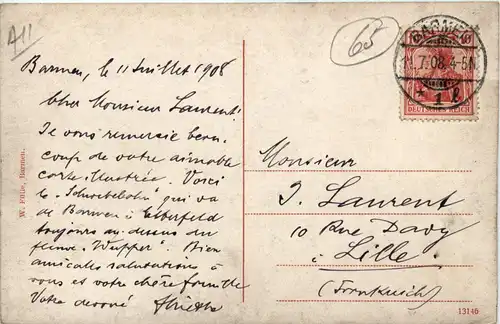 A11
65
Barmen, le 11 Juillet 1908
Cher Monsieur Laurent!
Je vous remercie beau-
coup de votre aimable
carte illustrée. Voici
le "Schwebebahn" qui va
de Barmen à Elberfeld
toujours au-dessus du
fleuve "Wupper". Bien
amicales salutations à
vous et votre chère famille
Votre dévoué
W. Fülle, Barmen.
BARMEN
11.7.08. 4-5N
* 1 l
DEUTSCHES REICH
Monsieur
J. Laurent
10 Rue Davy
à Lille.
(Frankreich)
13146